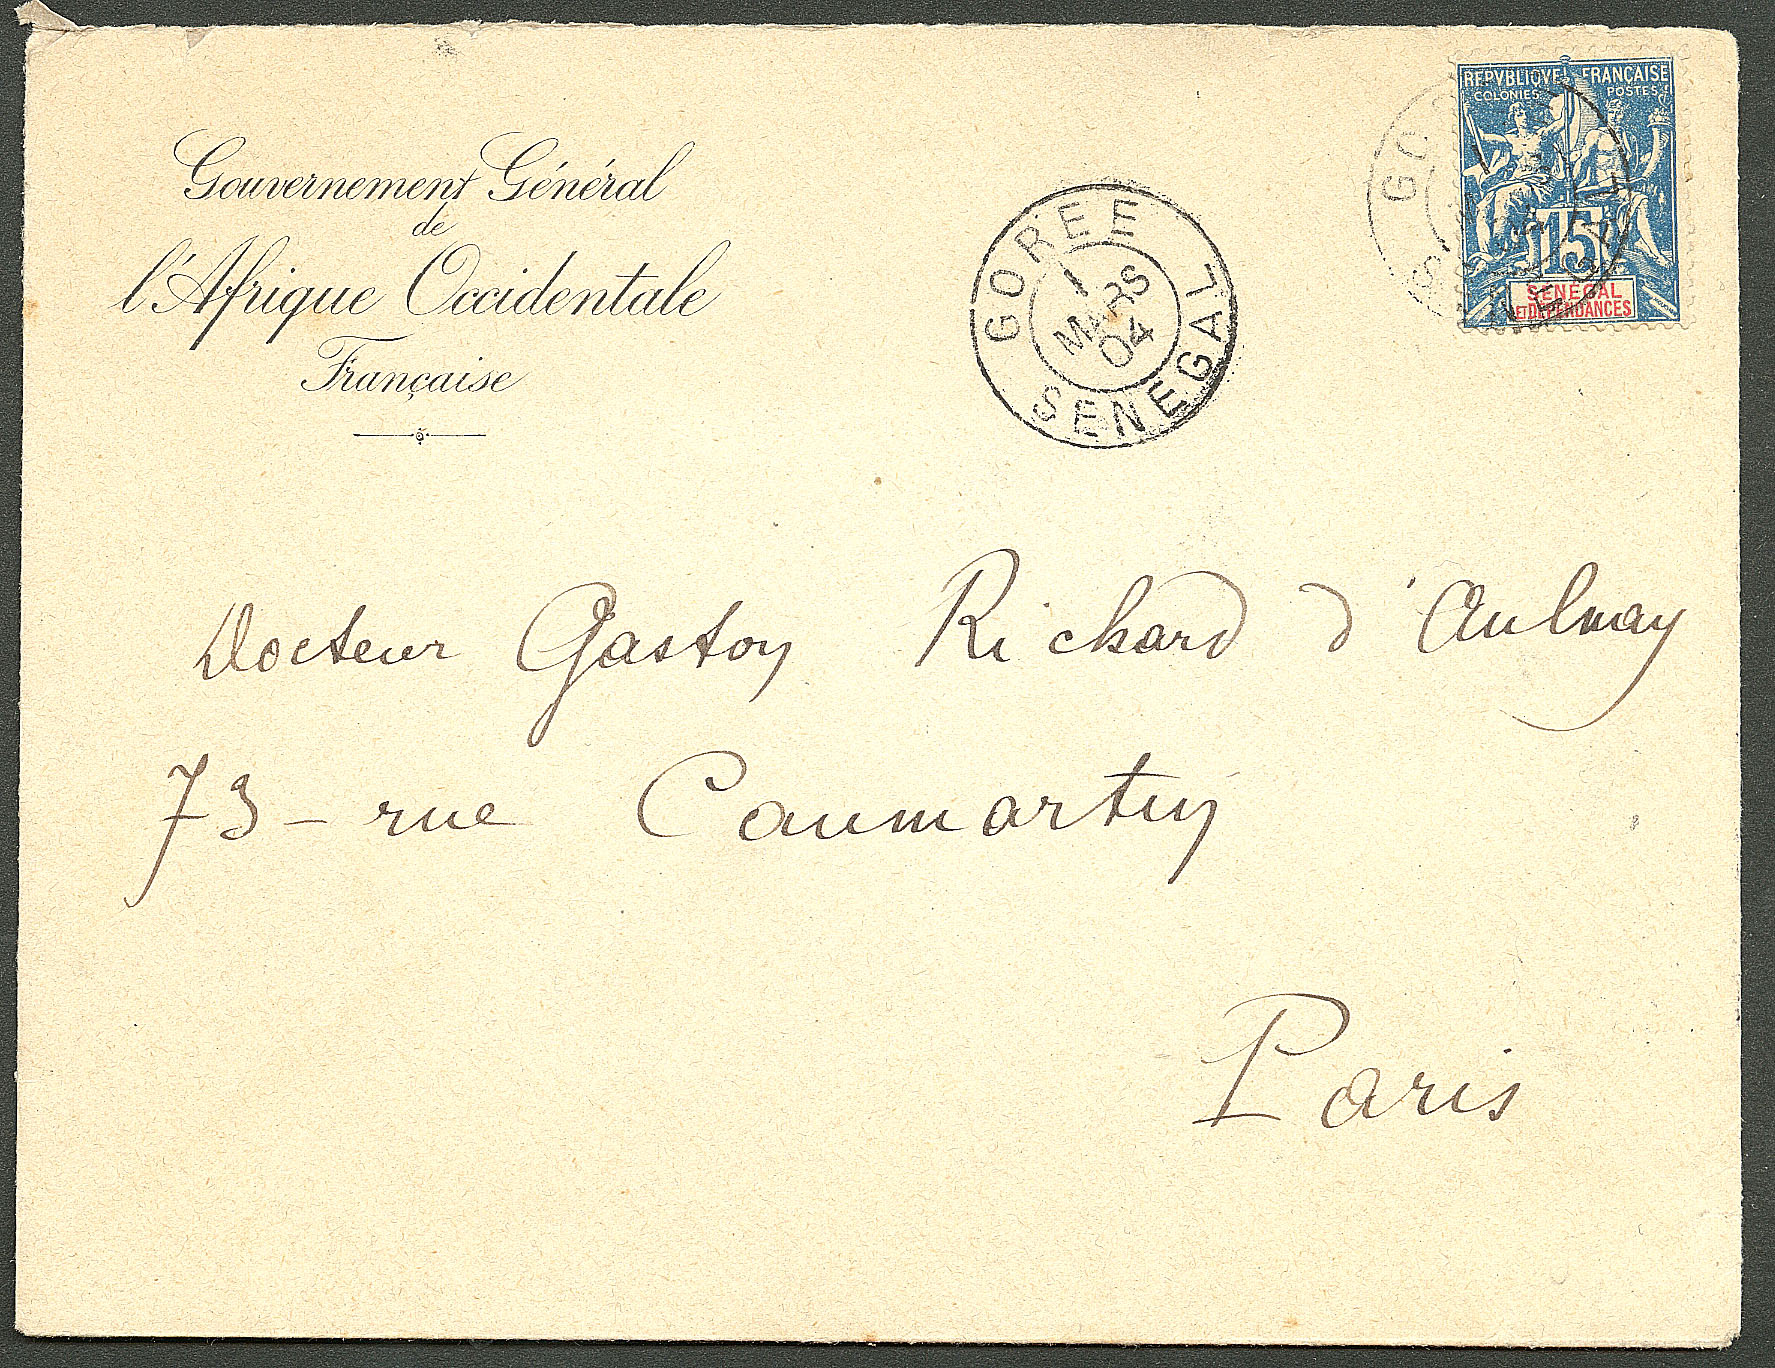 Gouvernement Général
de
l'Afrique Occidentale
Française
GOREE
1
MARS
04
SENEGAL
REPVBLIQVE FRANÇAISE
COLONIES POSTES
15
SENEGAL
ET DEPENDANCES
Docteur Gaston Richard d'Aulnay
73 - rue Caumartin
Paris